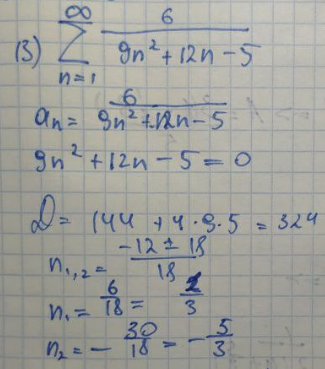 (3) ∑_{n=1}^{∞} 6/(9n²+12n-5)
aₙ = 6/(9n²+12n-5)
9n²+12n-5=0
D = 144+4·9·5 = 324
n₁,₂ = (-12±18)/18
n₁ = 6/18 = 1/3
n₂ = -30/18 = -5/3